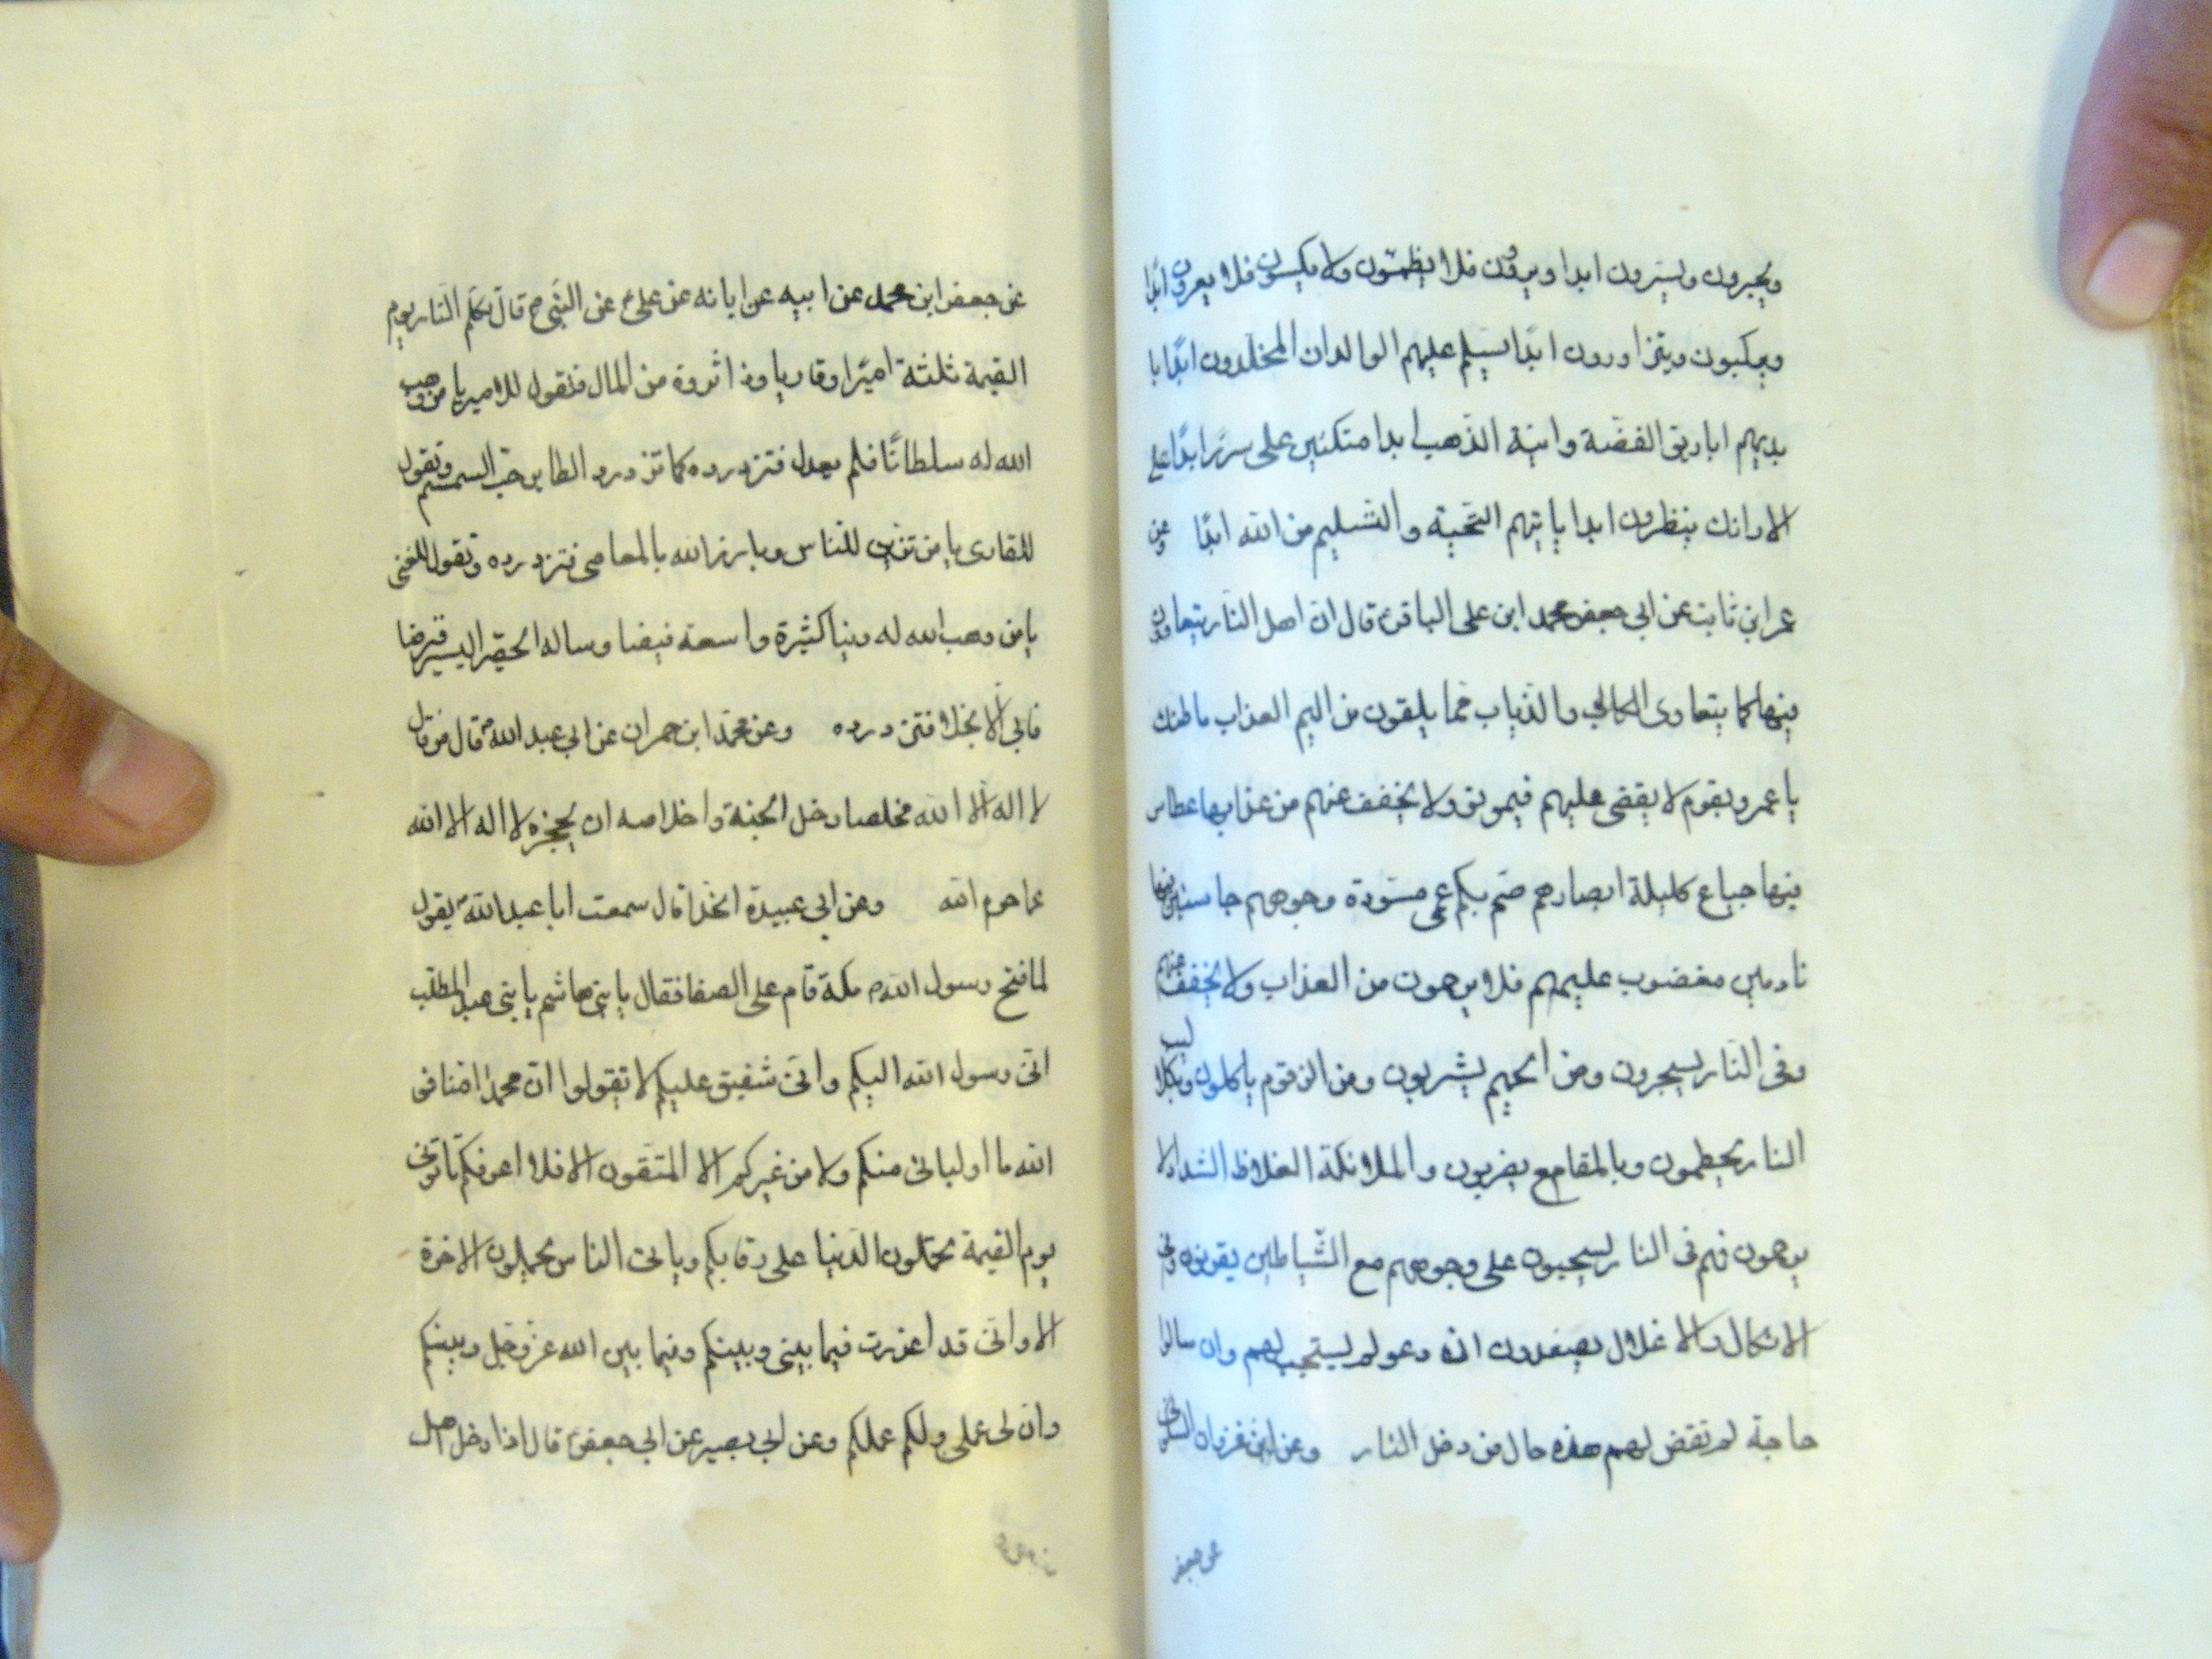 ويحبرون ويسترون ابدا ويردون فلا يظمئون ولا يكسون فلا يعرون ابدًا
ويركبون ويتزاورون ابدًا يسلم عليهم الوالدان المخلدون ابدًا با
يديهم اباريق الفضة وانية الذهب ابدا متكئين على سررا بدًا على
الارائك ينظرون ابدا ياتيهم التحية والتسليم من الله ابدًا وعن
عمر ابن ثابت عن ابي جعفر محمد ابن على الباقر قال ان اهل النار يتعاوون
فيها كما يتعاوى الكلاب والذياب مما يلقون من اليم العذاب ما ظنك
يا عمرو بقوم لا يقضى عليهم فيموتو ولا يخفف عنهم من عذابها عطاس
فيها جياع كليلة ابصارهم صم بكم عمى مسودة وجوههم خاسئين فيها
نادمين مغضوب عليهم فلا يرحمون من العذاب ولا يخفف عنهم
وفى النار يسجرون ومن الحميم يشربون ومن الزقوم ياكلون وبكلاليب
النار يحطمون وبالمقامع يضربون والملائكة الغلاظ الشداد لا
يرحمون فهم فى النار يسحبون على وجوههم مع الشياطين يقرنون وفى
الانكال والاغلال يصفدون ان دعو لم يستجب لهم وان سالوا
حاجة لم تقض لهم هذه حال من دخل النار وعن ابن غزوان السكونى
عن جعفر
عن جعفر ابن محمد عن ابيه عن ابائه عن على عن النبى ص قال تكلم النار يوم
القيمة ثلثة اميرًا وقاريا وذا ثروة من المال فتقول للامير يا من وهب
الله له سلطانًا فلم يعدل فتزدرده كما تزدرد الطاير حب السمسم وتقول
للقارى يا من تزين للناس وبارز الله بالمعاصى فتزدرده وتقول للغنى
يا من وهب الله له دنيا كثيرة واسعة فيضا وساله الحقير اليسير قرضا
فابى الا بخلا فتزدرده وعن محمد ابن حمران عن ابي عبد الله قال من قال
لا اله الا الله مخلصا دخل الجنة واخلاصه ان يحجزه لا اله الا الله
عما حرم الله وعن ابي عبيدة الحذا قال سمعت ابا عبد الله يقول
لما فتح رسول الله مكة قام على الصفا فقال يا بنى هاشم يا بنى عبد المطلب
انى رسول الله اليكم وانى شفيق عليكم لا تقولوا ان محمدا منا فو
الله ما اوليائى منكم ولا من غيركم الا المتقون الا فلا اعرفكم تاتونى
يوم القيمة تحملون الدنيا على رقابكم وياتى الناس يحملون الاخرة
الا وانى قد اعذرت فيما بينى وبينكم وفيما بين الله عز وجل وبينكم
وان لى عملى ولكم عملكم وعن ابي بصير عن ابي جعفر قال اذا دخل اهل